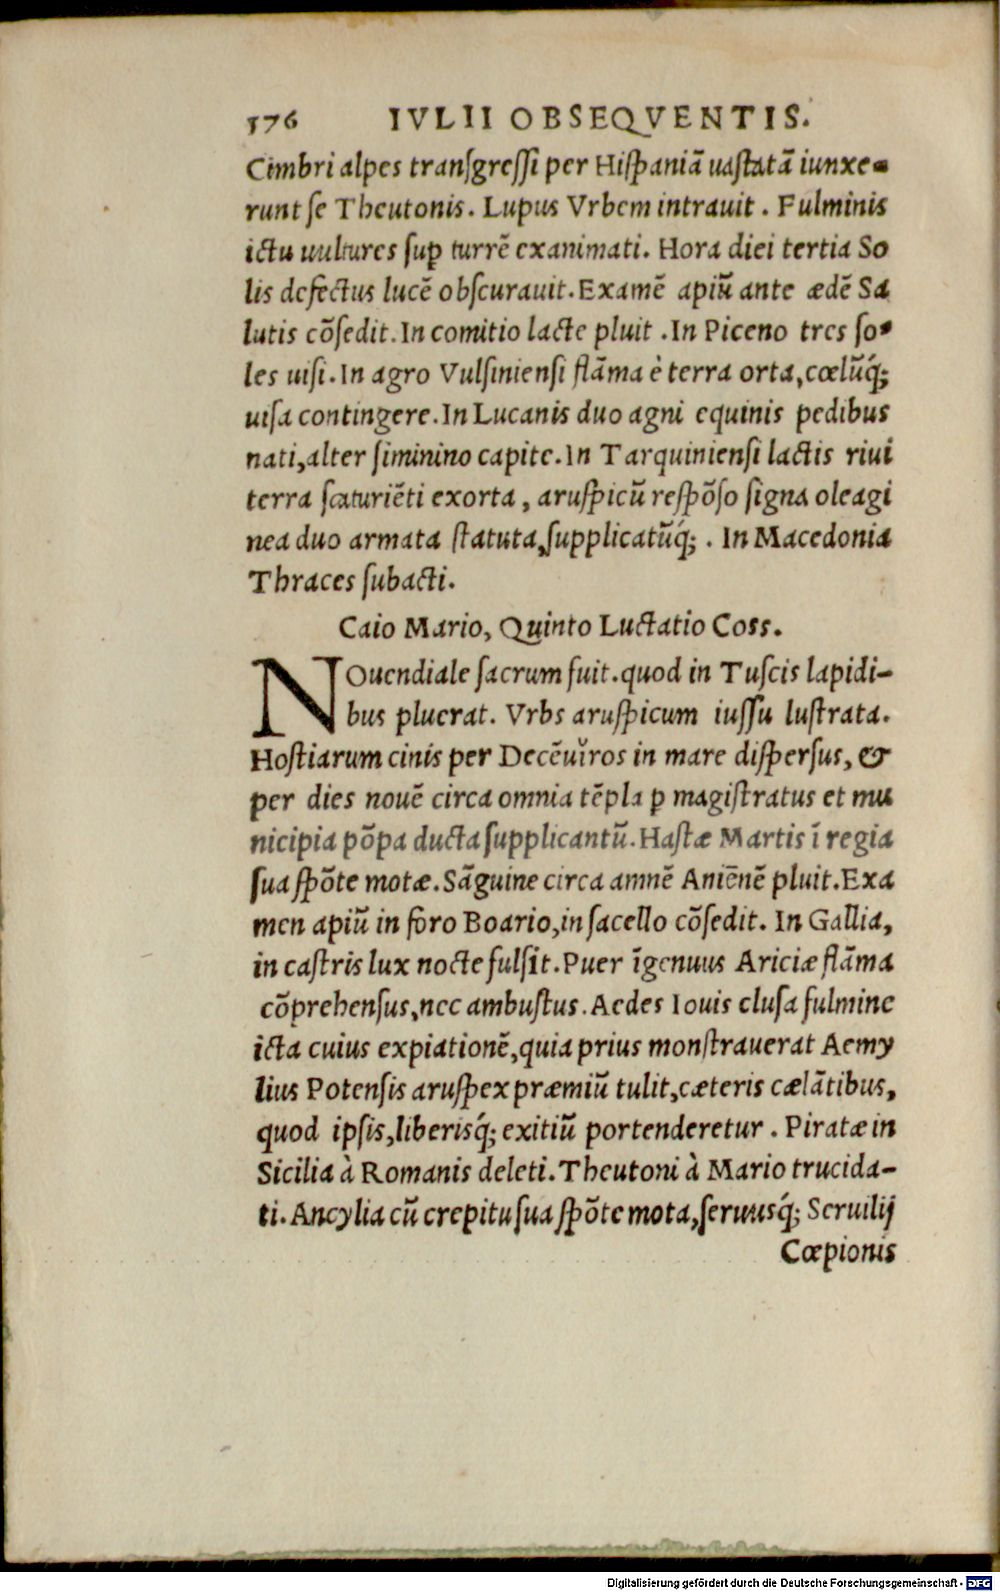 576 IVLII OBSEQVENTIS.
Cimbri alpes transgressi per Hispaniā uastatā iunxe-
runt se Theutonis. Lupus Vrbem intrauit. Fulminis
ictu uultures sup turrē exanimati. Hora diei tertia So
lis defectus lucē obscurauit. Examē apiū ante ædē Sa
lutis cōsedit. In comitio lacte pluit. In Piceno tres so-
les uisi. In agro Vulsiniensi flāma è terra orta, cœlūq́;
uisa contingere. In Lucanis duo agni equinis pedibus
nati, alter siminino capite. In Tarquiniensi lactis riui
terra scaturiēti exorta, aruspicū respōso signa oleagi
nea duo armata statuta, supplicatūq́;. In Macedonia
Thraces subacti.
Caio Mario, Quinto Luctatio Coss.
NOuendiale sacrum fuit. quod in Tuscis lapidi-
bus pluerat. Vrbs aruspicum iussu lustrata.
Hostiarum cinis per Decēuiros in mare dispersus, &
per dies nouē circa omnia tēpla p magistratus et mu
nicipia pōpa ducta supplicantū. Hastæ Martis ī regia
sua spōte motæ. Sāguine circa amnē Aniēnē pluit. Exa
men apiū in foro Boario, in sacello cōsedit. In Gallia,
in castris lux nocte fulsit. Puer īgenuus Ariciæ flāma
cōprehensus, nec ambustus. Aedes Iouis clusa fulmine
icta cuius expiationē, quia prius monstrauerat Aemy
lius Potensis aruspex præmiū tulit, cæteris cælātibus,
quod ipsis, liberisq́; exitiū portenderetur. Piratæ in
Sicilia à Romanis deleti. Theutoni à Mario trucida-
ti. Ancylia cū crepitu sua spōte mota, seruusq́; Seruilij
Cœpionis
Digitalisierung gefördert durch die Deutsche Forschungsgemeinschaft - DFG